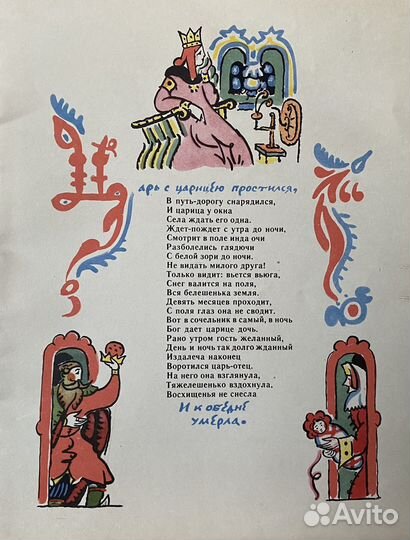 Царь с царицею простился,
В путь-дорогу снарядился,
И царица у окна
Села ждать его одна.
Ждет-пождет с утра до ночи,
Смотрит в поле инда очи
Разболелись глядючи
С белой зори до ночи.
Не видать милого друга!
Только видит: вьется вьюга,
Снег валится на поля,
Вся белешенька земля.
Девять месяцев проходит,
С поля глаз она не сводит.
Вот в сочельник в самый, в ночь
Бог дает царице дочь.
Рано утром гость желанный,
День и ночь так долго жданный
Издалеча наконец
Воротился царь-отец.
На него она взглянула,
Тяжелешенько вздохнула,
Восхищенья не снесла
И к обедне
умерла.
Avito